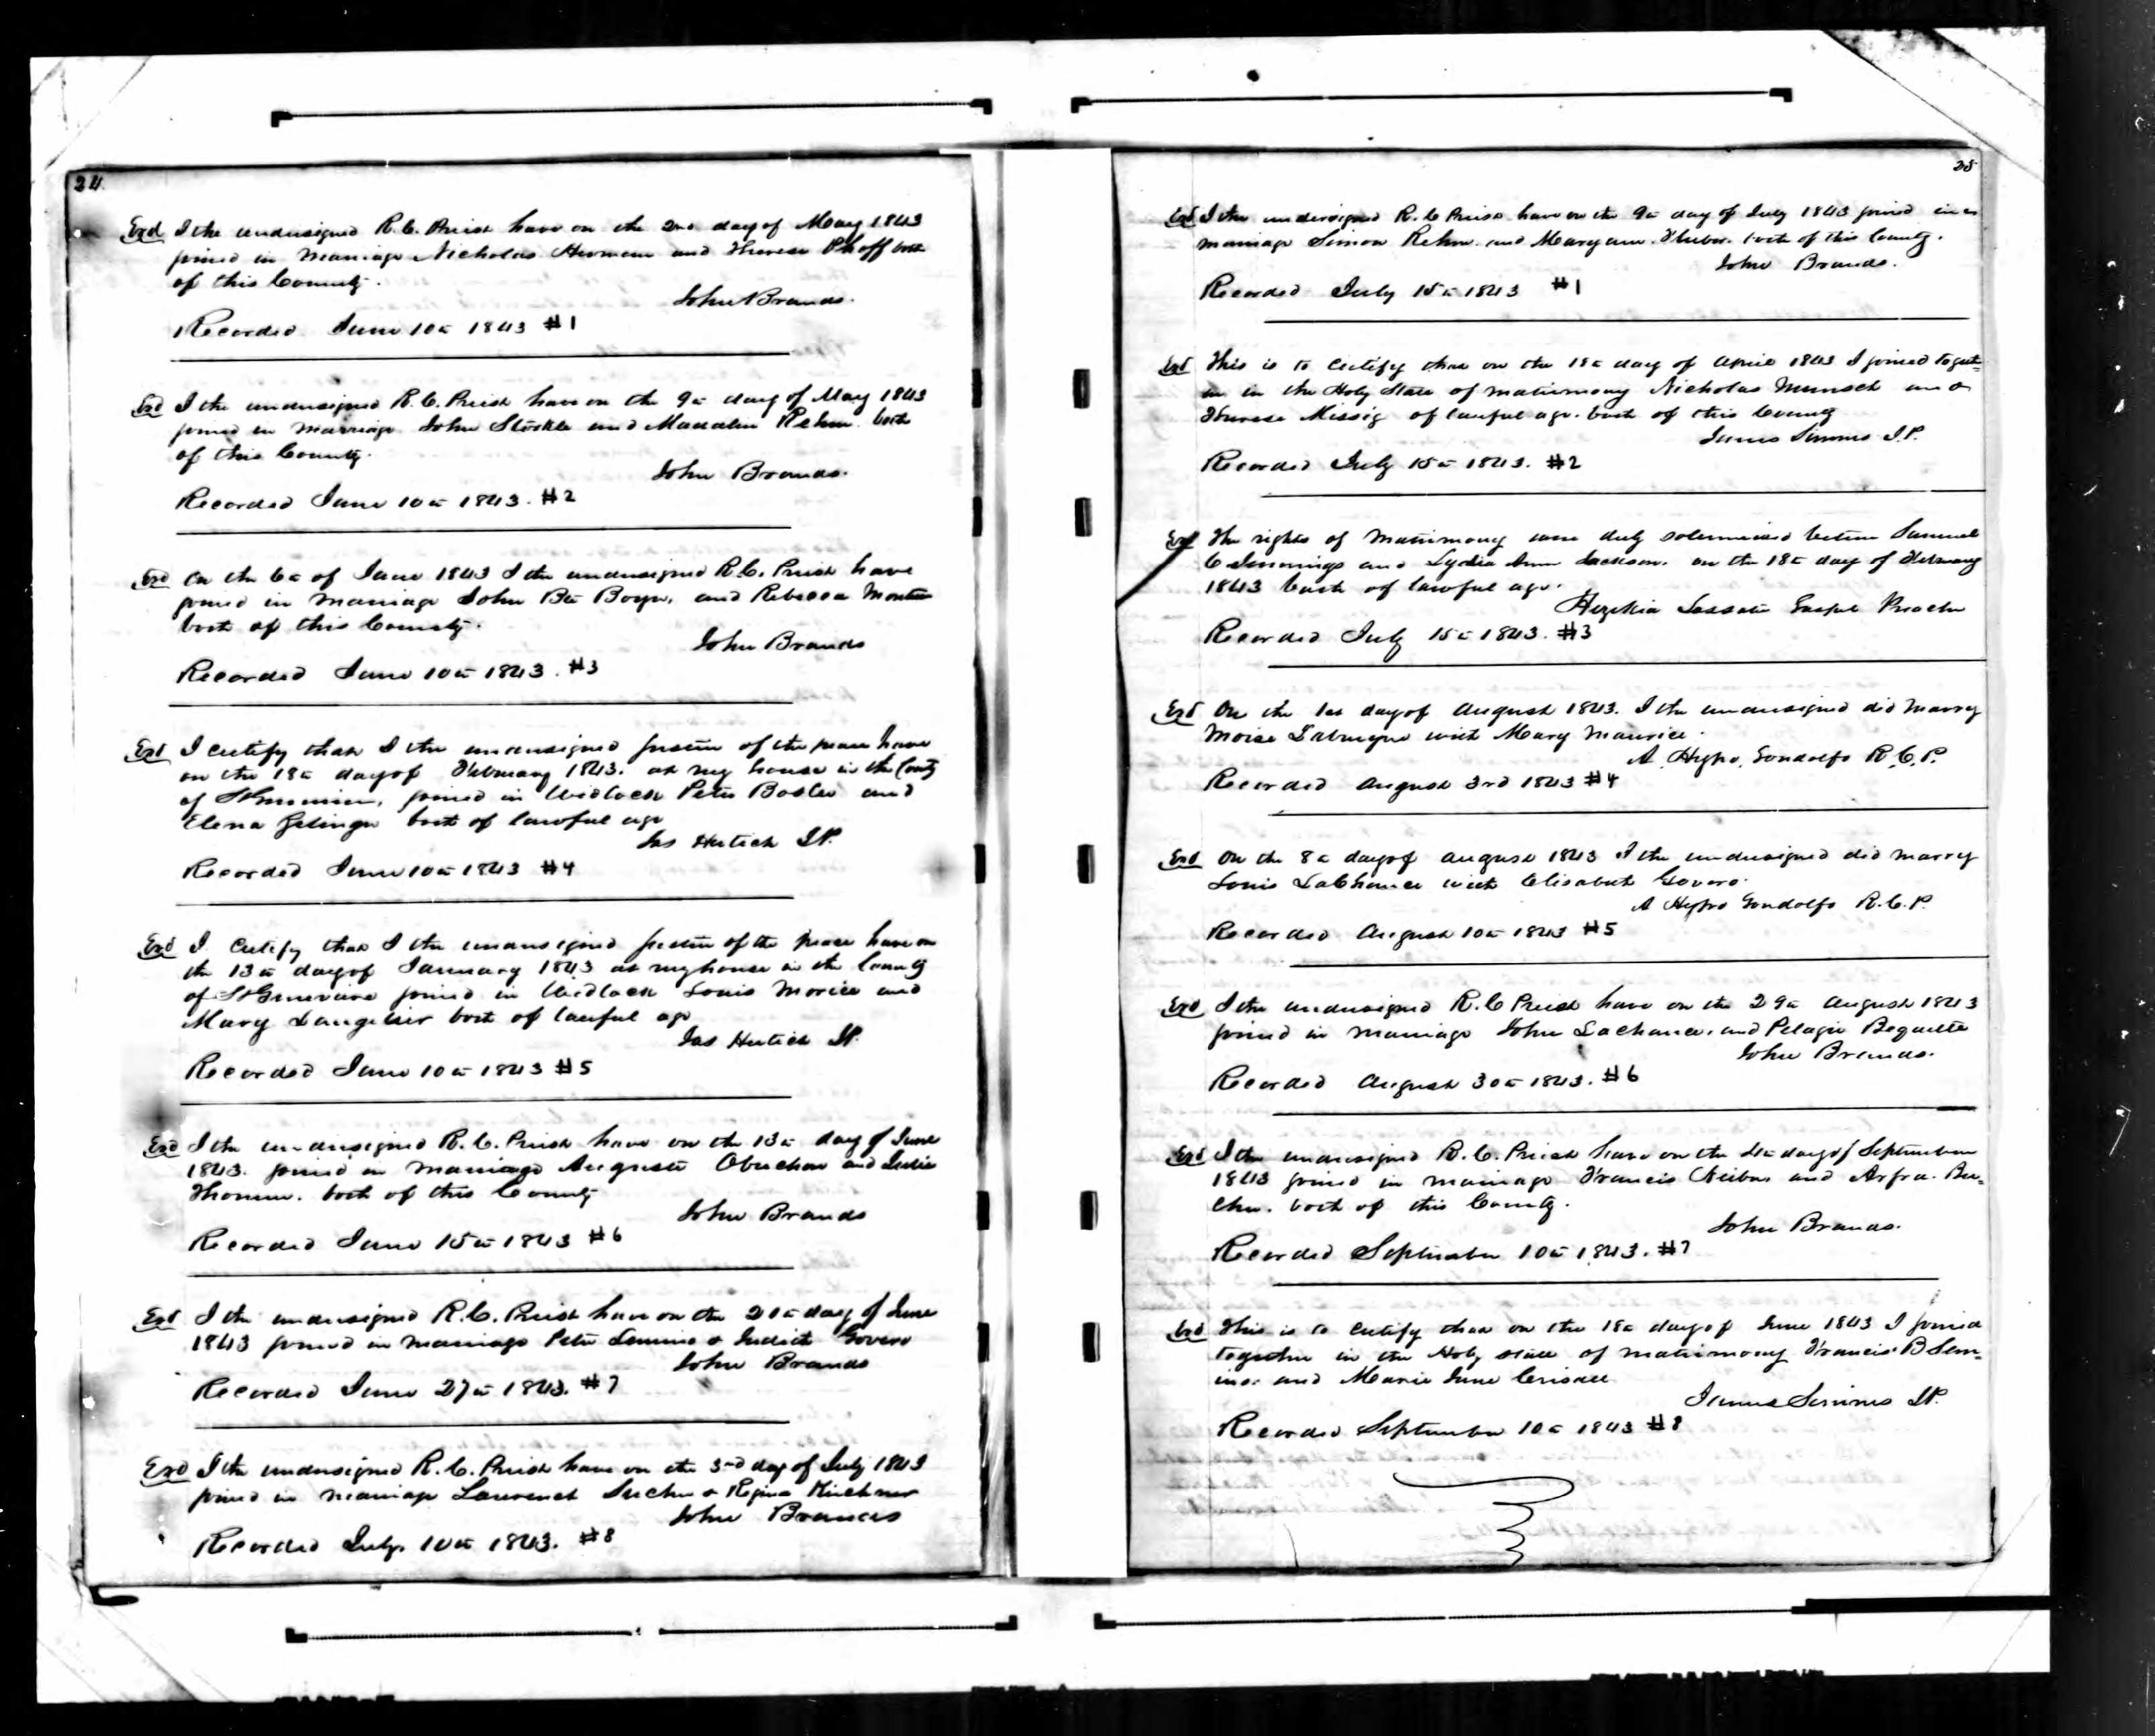 24.
Exd I the undersigned R.C. Priest have on the 2nd day of May 1843
joined in marriage Nicholas Hermann and Therese both
of this County.
John Brands.
Recorded June 10th 1843 #1
Exd I the undersigned R.C. Priest have on the 9th day of May 1843
joined in marriage John Stöckle and Madalin Rehm both
of this County.
John Brands.
Recorded June 10th 1843. #2
Exd On the 6th of June 1843 I the undersigned R.C. Priest have
joined in marriage John Bte Boyer, and Rebecca
both of this County.
John Brands
Recorded June 10th 1843. #3
Exd I certify that I the undersigned justice of the peace have
on the 18th day of February 1843. at my house in the County
of joined in Wedlock Peter Bosler and
Elena both of lawful age
Jas Hutich JP.
Recorded June 10th 1843 #4
Exd I certify that I the undersigned justice of the peace have on
the 13th day of January 1843 at my house in the County
of joined in Wedlock Louis Morice and
Mary Langelier both of lawful age
Jas Hutich JP.
Recorded June 10th 1843 #5
Exd I the undersigned R.C. Priest have on the 13th day of June
1843. joined in marriage Auguste Obuchon and
Thomure. both of this County
John Brands
Recorded June 15th 1843 #6
Exd I the undersigned R.C. Priest have on the day of June
1843 joined in marriage Peter & Judith Govero
John Brands
Recorded June 27th 1843. #7
Exd I the undersigned R.C. Priest have on the 3rd day of July 1843
joined in marriage Lawrence & Regina Kirchner
John Brands
Recorded July 10th 1843. #8
25
Exd I the undersigned R.C Priest have on the 9th day of July 1843 joined in
marriage Simon Rehm and Maryann Huber. both of this County.
John Brands.
Recorded July 15th 1843 #1
Exd This is to Certify that on the 18th day of April 1843 I joined togeth-
er in the Holy State of matrimony Nicholas Munsch and
Therese Missig of lawful age. both of this County
James Simms J.P.
Recorded July 15th 1843. #2
Exd The rights of Matrimony were duly solemnised between Samuel
C Jennings and Lydia Ann Jackson. on the 18th day of February
1843 both of lawful age.
Hezekia
Recorded July 15th 1843. #3
Exd On the 1st day of August 1843. I the undersigned did marry
Moise Labruyere with Mary Maurice.
A. Hypo. Gondolfo R.C.P.
Recorded August 3rd 1843 #4
Exd On the 8th day of August 1843 I the undersigned did marry
Louis LaChance with Elisabeth Govero.
A Hypo Gondolfo R.C.P.
Recorded August 10th 1843 #5
Exd I the undersigned R.C Priest have on the 29th August 1843
joined in marriage John Lachance. and Pelagie Bequette
John Brands.
Recorded August 30th 1843. #6
Exd I the undersigned R.C. Priest have on the 4th day of September
1843 joined in marriage Francis and Arfra. Bu-
cher. both of this County.
John Brands.
Recorded September 10th 1843. #7
Exd This is to Certify that on the 18th day of June 1843 I joined
together in the Holy state of matrimony Francis B Sim-
ms. and Marie June
James Simms JP.
Recorded September 10th 1843 #8